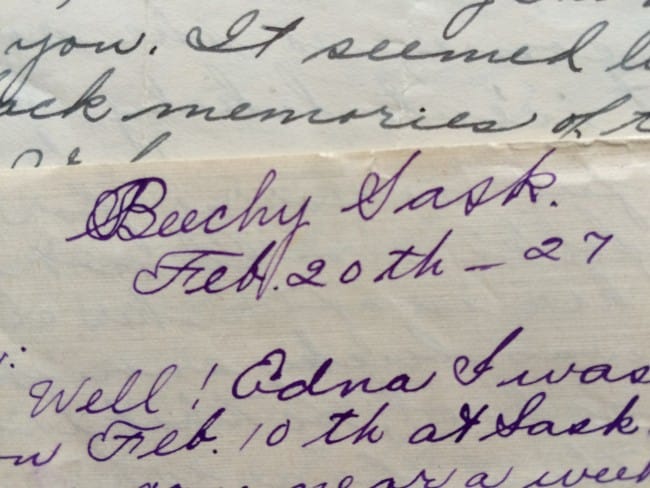 you. It seemed
memories of
Beechy Sask.
Feb. 20th - 27
Well! Edna I was
Feb. 10th at Sask.
near a week